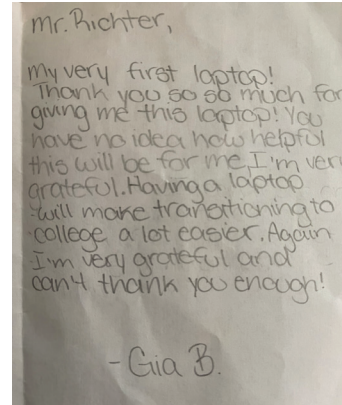 Mr. Richter,
My very first laptop!
Thank you so so much for
giving me this laptop! You
have no idea how helpful
this will be for me I'm very
grateful. Having a laptop
will make transitioning to
college a lot easier. Again
I'm very grateful and
can't thank you enough!
- Gia B.